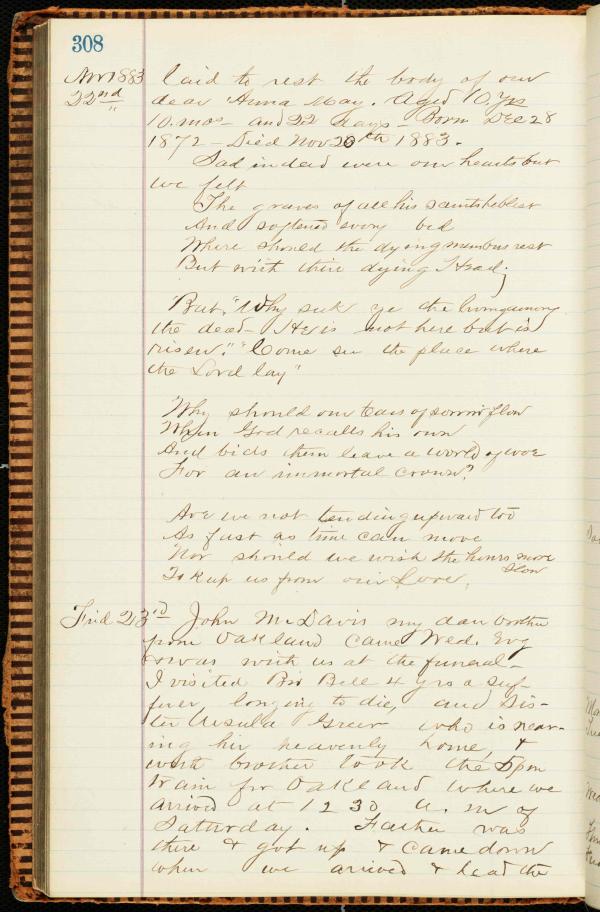 308
Nov 1883 laid to rest the body of our
22nd dear Anna May. Aged 10. Yrs
10. mos - and 22 days - Born Dec 28
1872 - Died Nov 20th 1883.
Sad indeed were our hearts but
we felt
The graves of all his saints he blest
And softened every bed
Where should the dying members rest
But with their dying Head;
"But, "Why seek ye the living among
the dead - He is not here but is
risen." "Come see the place where
the Lord lay"
"Why should our tears of sorrow flow
When God recalls his own
And bids them leave a world of woe
For an immortal crown?
Are we not tending upward too
As fast as time can move
Nor should we wish the hours more
slow
To keep us from our Love.
Frid 23rd John M. Davis my dear brother
from Oakland came Wed. Evg
& was with us at the funeral -
I visited Bro Bell 4 yrs a suf-
ferer longing to die, and Sis-
ter Ursula Greer who is near-
ing her heavenly home, &
with brother took the 5 pm
train for Oakland where we
arrived at 12 30 a. m of
Saturday. Father was
there & got up & came down
when we arrived & lead the